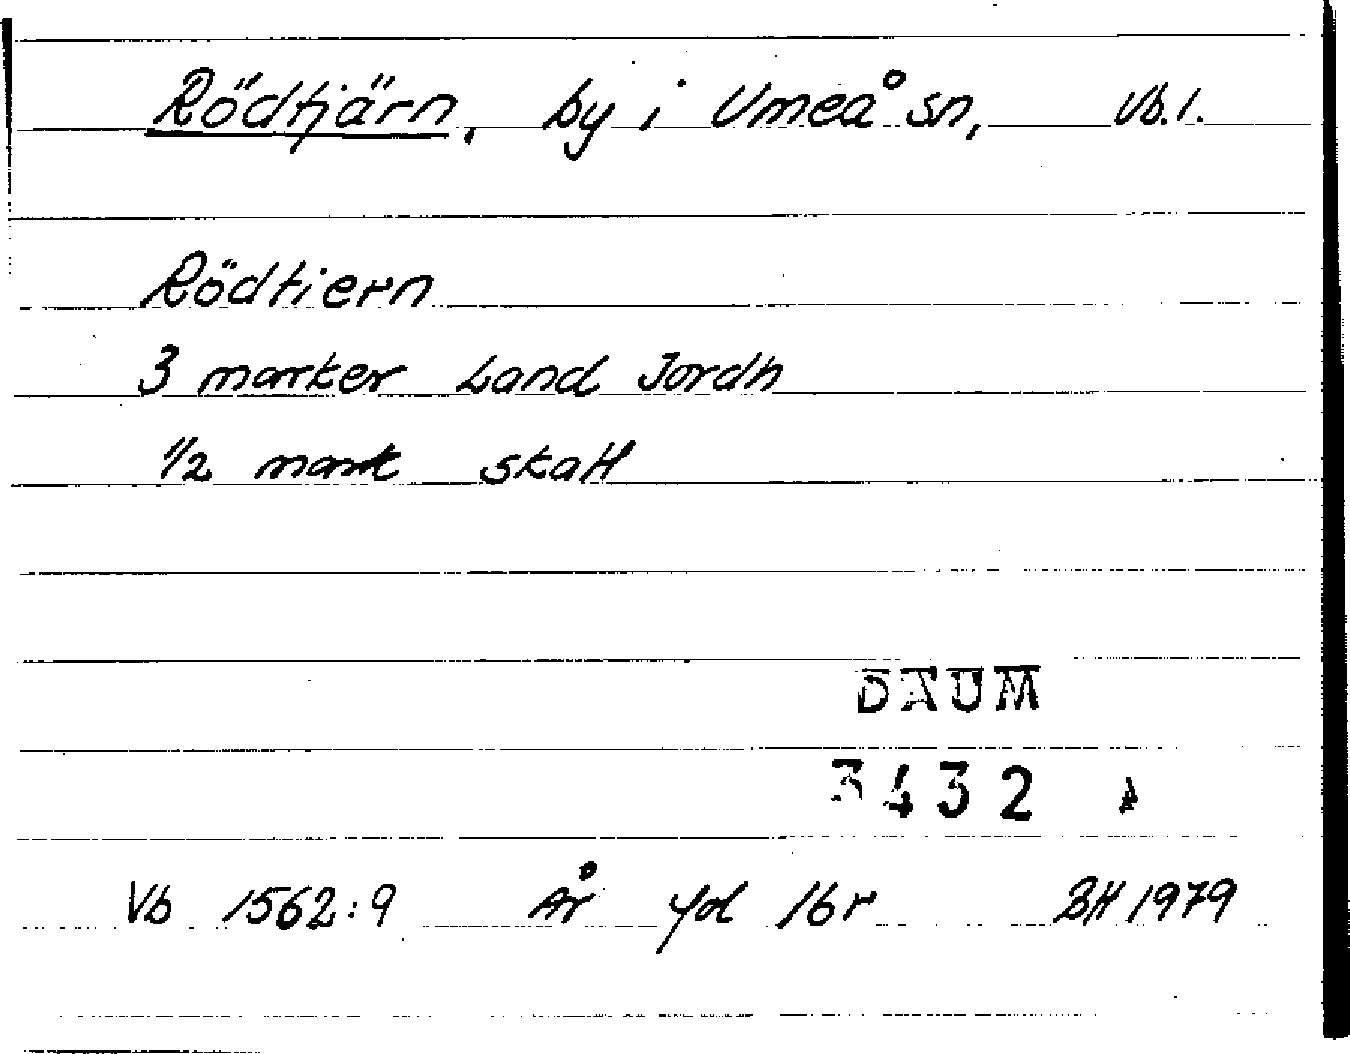 Rödtjärn, by i Umeå sn, Vb.l.
Rödtiern
3 marker Land Jordh
1/2 mark skatt
DAUM
3432
Vb 1562:9 ÄR fol 16r BH 1979